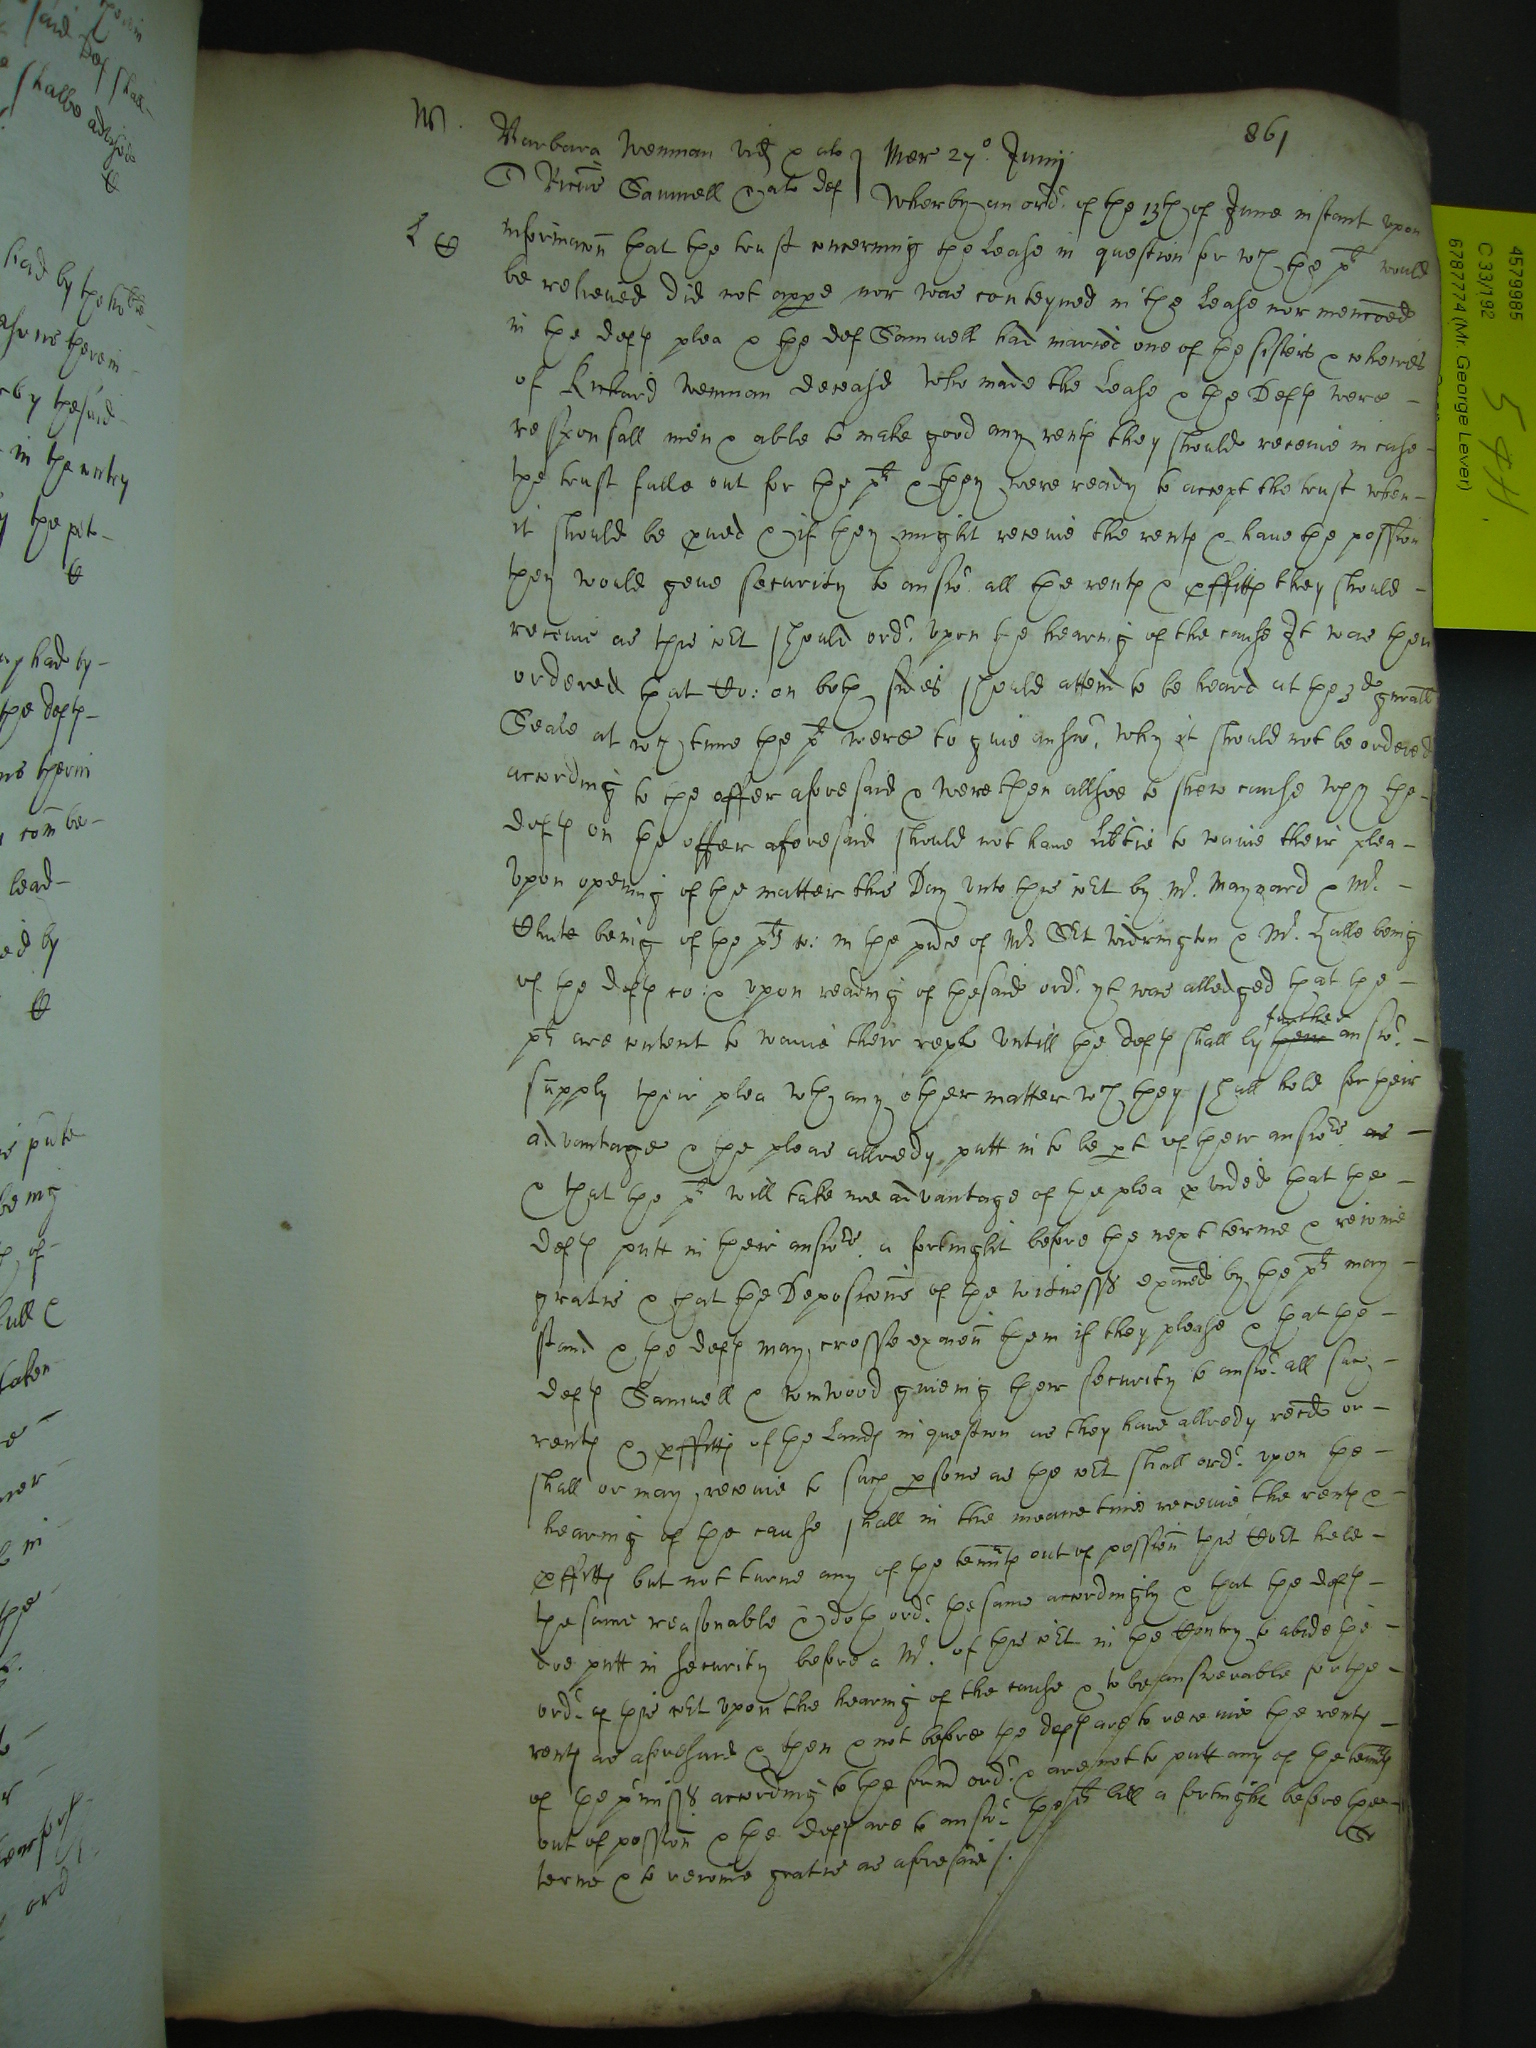 861
W. Barbara Wenman vid & al Mer 27o. Junij
Ricus Samwell & al def Wherby an ordr. of the 13th of June instant upon
L informacon that the trust concerning the Lease in question for wch the plt would
be releived did not appe nor was conteyned in the Lease nor menconed
in the defts plea & the def Samwell had maried one of the sisters & coheires
of Richard Wenman deceased who made the Lease & the Defts were
responsall men & able to make good any rents they should receive in case
the trust falle out for the plt & they were ready to accept the trust when
it should be pved & if they might receive the rents & have the possion
they would geve security to answr. all the rents & pffitts they should
receive as this Cort should ordr. upon the hearing of the cause It was then
ordered that Co: on both sides should attend to be heard at the 3d gnrall
Seale at wch time the plt were to give answr. why it should not be ordered
according to the offer aforesaid & were then allsoe to shew cause why the
defts on the offer aforesaid should not have libtie to waive their plea
Upon opening of the matter this Day unto this Cort by Mr. Maynard & Mr.
Chute being of the plts co: in the pnce of Mr Sert Widrington & Mr. Halle being
of the defts co: & upon reading of the said ordr. yt was alledged that the
plts are content to waive their repl untill the defts shall by their further answr.
supply their plea wth any other matter wch they shall hold for their
advantage & the pleas allredy putt in to be pt of their answrs. as
& that the plt will take noe advantage of the plea pvided that the
defts putt in their answrs. a fortnight before the next terme & rejoine
gratis & that the Deposicons of the witnesses exaned by the plts may
stand & the defts may crosse examen them if they please & that the
defts Samwell & Winwood giveing their security to answr. all such
rents & pffitts of the Lands in question as they have allredy recd or
shall or may receive to such psons as the Cort shall ordr. upon the
hearing of the cause shall in the meane time receive the rents &
pffitts but not turne any of the tennts out of possion this Cort held
the same reasonable & doth ordr. the same accordingly & that the defts
doe putt in security before a Mr. of this Cort in the Contry to abide the
ordr. of this Cort upon the hearing of the cause & to be answerable for the
rents as aforesaid & then & not before the defts are to receive the rents
of the pmisses according to the formr ordr. & are not to putt any of the tennts
out of possion & the defts are to answr. the plts bill a fortnight before the
terme & to rejoine gratis as aforesaid /.
4579985
C 33/192
6787774 (Mr. George Lever)